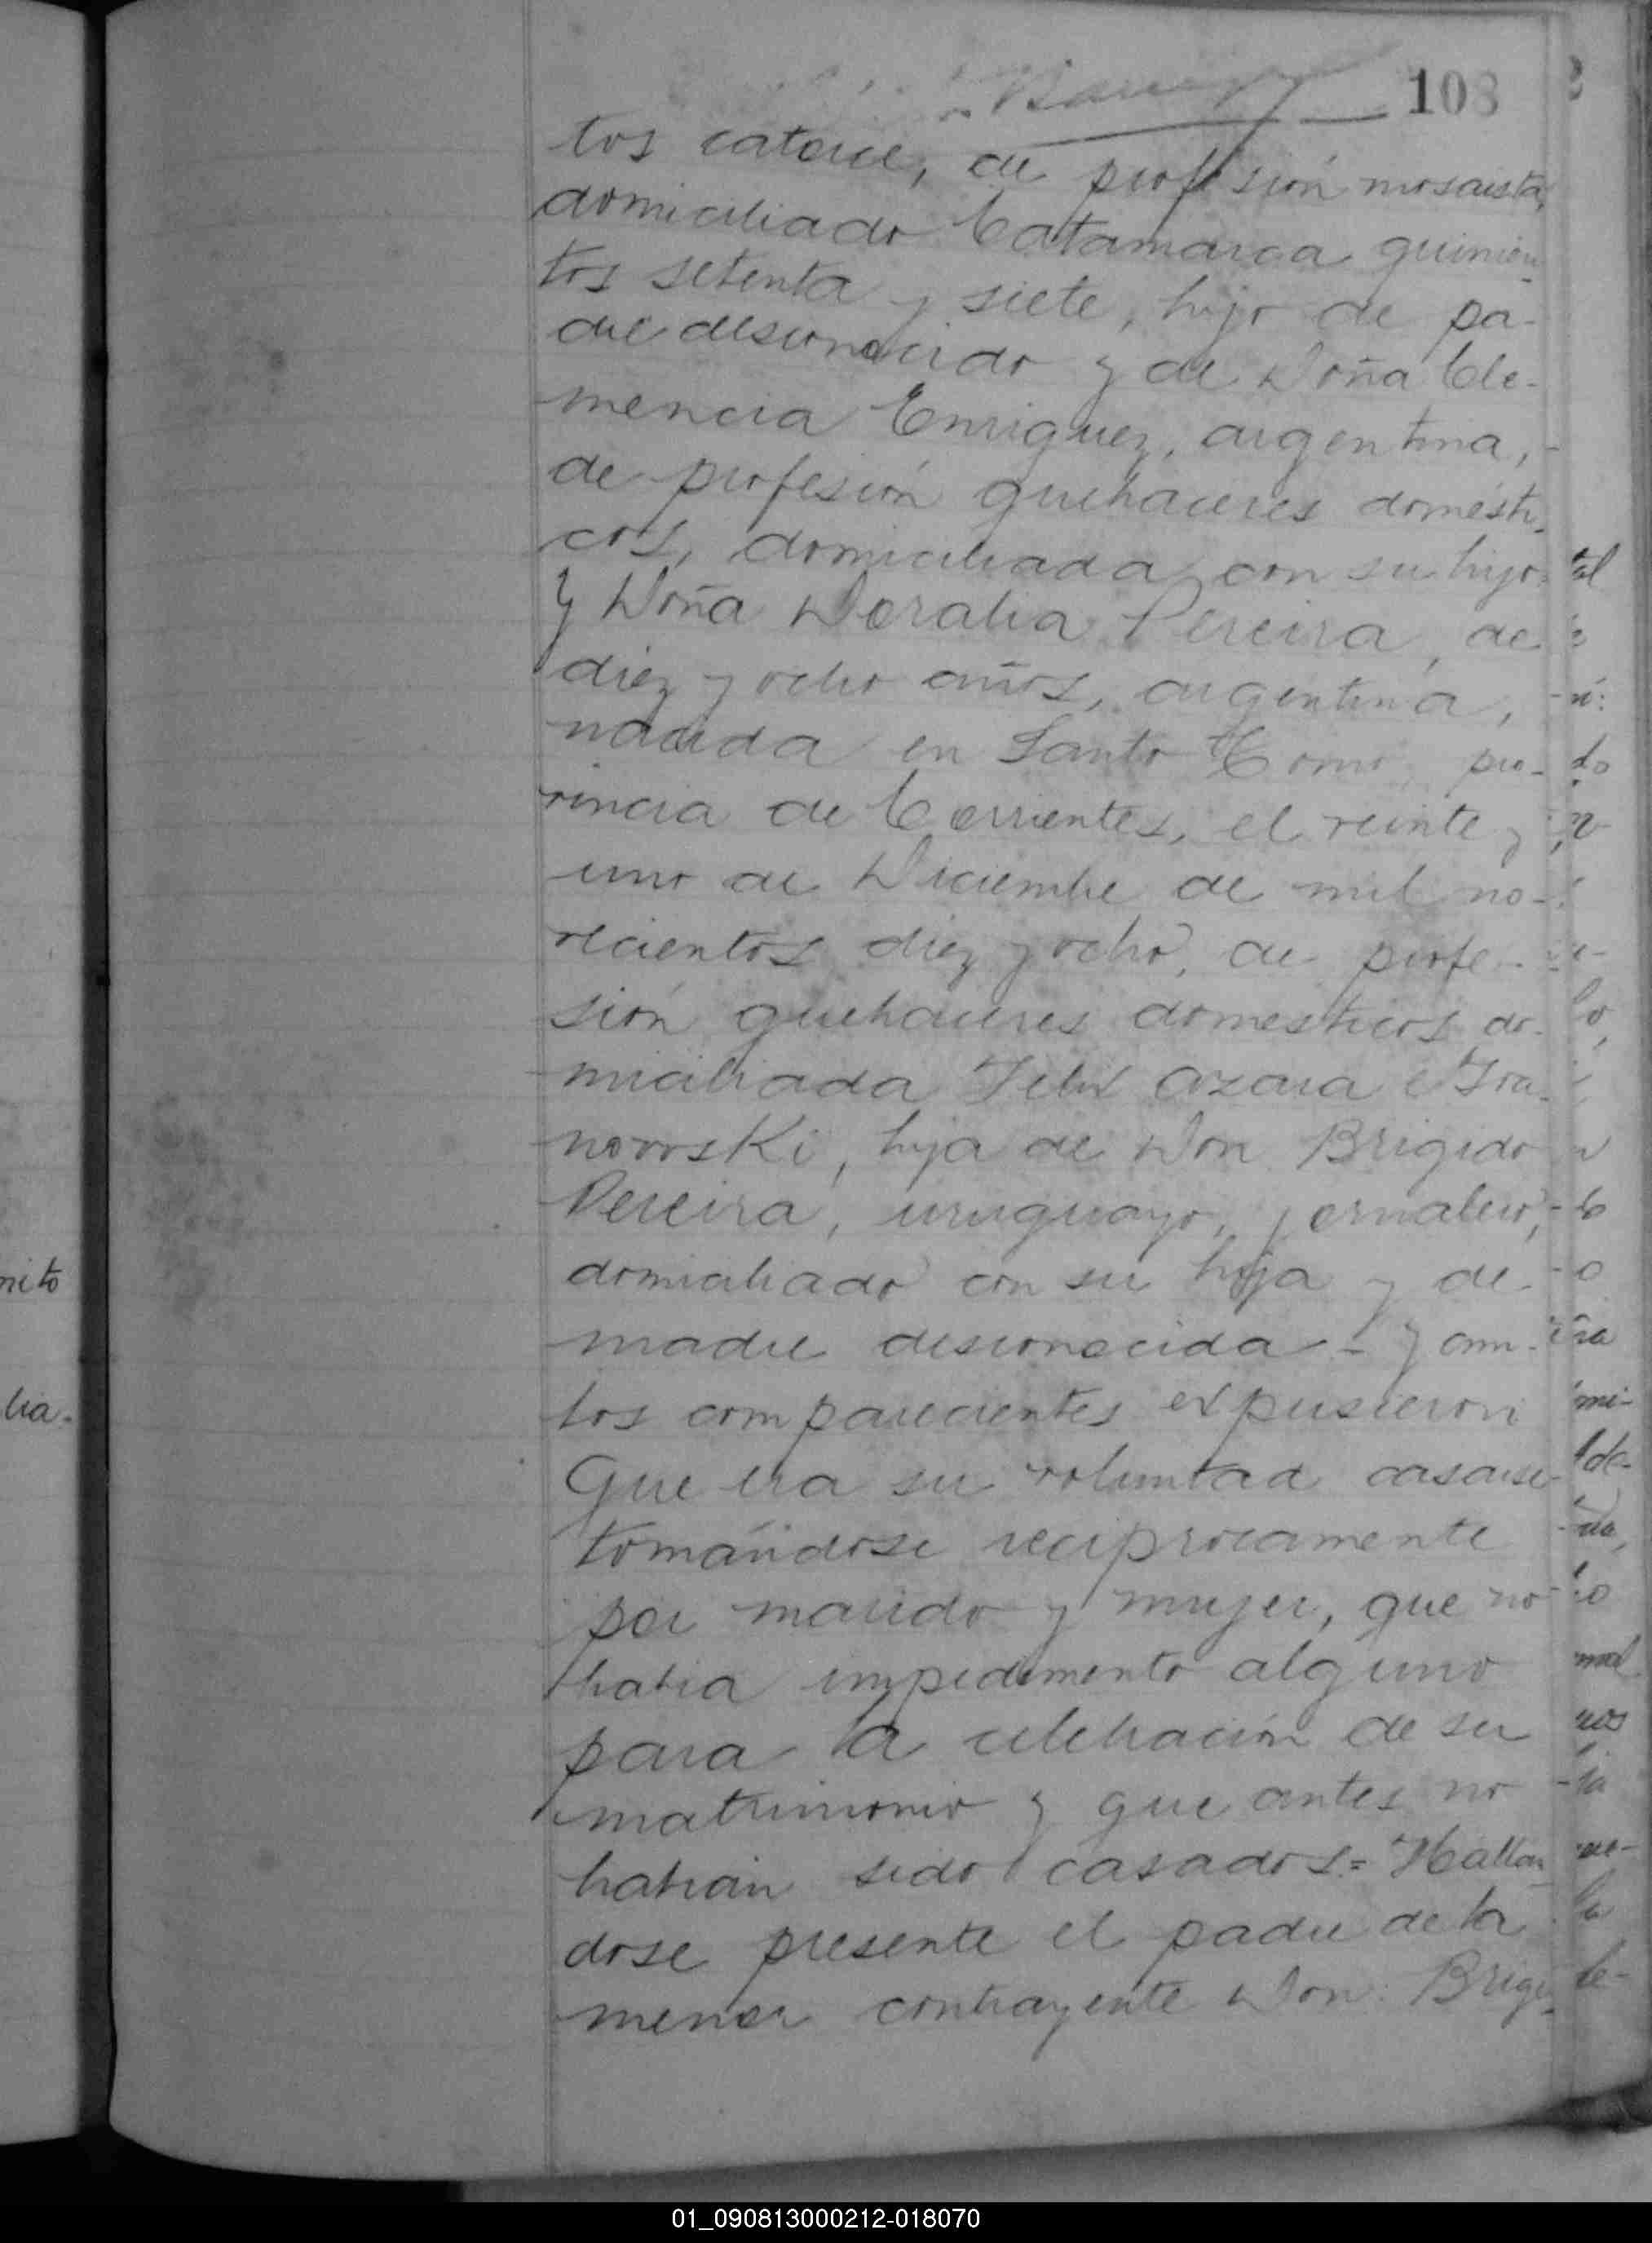 108
tos catorce, de profesión mosaista,
domiciliado Catamarca quinien-
tos setenta y siete, hijo de pa-
dre desconocido y de Doña Cle-
mencia Enriquez, argentina,
de profesión quehaceres domesti-
cos, domiciliada con su hijo.
Y Doña Doralia Pereira, de
diez y ocho años, argentina,
nacida en Santo Tomé, pro-
vincia de Corrientes, el veinte y
uno de Diciembre de mil no-
vecientos diez y ocho, de profe-
sión quehaceres domesticos do-
miciliada Felix Azara e Iva-
nowski, hija de Don Brigido
Pereira, uruguayo, jornalero,
domiciliado con su hija y de
madre desconocida - Y am-
bos comparecientes expusieron
Que era su voluntad casarse
tomándose reciprocamente
por marido y mujer, que no
habia impedimento alguno
para la celebración de su
matrimonio y que antes no
habian sido casados = Hallan-
dose presente el padre de la
menor contrayente Don Brigi-
nito
lia.
01_090813000212-018070